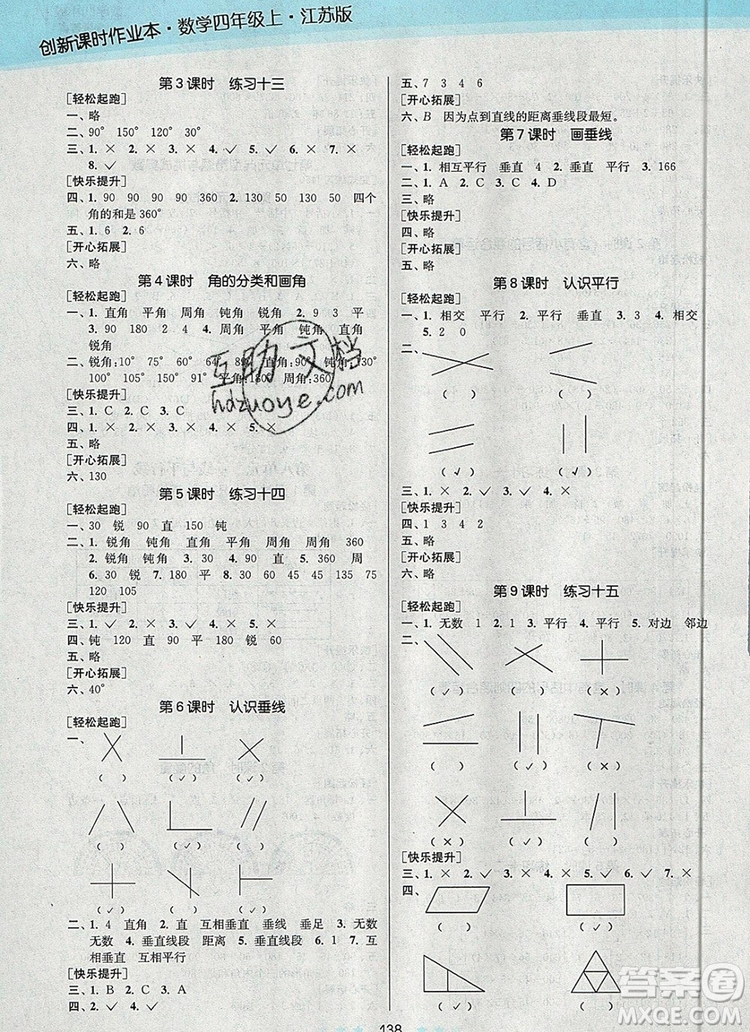 创新课时作业本·数学四年级上·江苏版
第3课时 练习十三
[轻松起跑]
一、略
二、90° 150° 120° 30°
三、1. × 2. × 3. × 4. × 5. ✓ 6. × 7. ×
8. ✓
[快乐提升]
四、1. 90 90 90 360 2. 130 50 130 50 四个
角的和是360°
五、略
[开心拓展]
六、略
第4课时 角的分类和画角
[轻松起跑]
一、1. 直角 平角 周角 钝角 锐角 2. 9 3 平
3. 90 180 2 4 4. 周角 平角 钝角 直角
锐角
二、锐角:10° 75° 60° 直角:90° 钝角:
100° 105° 平角:180° 周角:360°
[快乐提升]
三、1. C 2. B 3. A 4. C
四、1. × 2. × 4. × 5. ×
五、略
[开心拓展]
六、130
第5课时 练习十四
[轻松起跑]
一、30 锐 90 直 150 钝
二、1. 锐角 钝角 直角 周角 周角 360
2. 锐角 钝角 3. 30 4. 90 5. 锐 6. 360
7. 锐 180 平 8. 30 60 45 45 135
120 105
[快乐提升]
三、1. ✓ 2. × 3. × 4. × 5. ✓ 6. ×
四、钝 120 直 90 平 180 锐 60
五、略
[开心拓展]
六、40°
第6课时 认识垂线
[轻松起跑]
一、
( ) (✓) ( )
( ) (✓) ( )
(✓) ( ) (✓)
二、1. 4 直角 2. 直 互相垂直 垂线 垂足 3. 无数
无数 4. 垂直线段 距离 5. 垂直线段 6. 1 7. 互
相垂直 互相垂直
[快乐提升]
三、1. 3 2. 2
四、2. ✓ 4. ✓
五、7 3 4 6
[开心拓展]
六、B 因为点到直线的距离垂线段最短。
第7课时 画垂线
[轻松起跑]
一、1. 相互平行 垂直 4 2. 垂直 平行 3. 166
二、1. A 2. C 3. C 4. D
三、略
[快乐提升]
四、略
[开心拓展]
五、略
第8课时 认识平行
[轻松起跑]
一、1. 相交 平行 2. 平行 垂直 3. 3 4. 相交
5. 2 0
二、
( ) ( )
(✓) (✓)
三、1. × 2. ✓ 3. ✓ 4. ×
[快乐提升]
四、1 3 4 2
[开心拓展]
六、略
第9课时 练习十五
[轻松起跑]
一、1. 无数 1 2. 1 3. 平行 4. 平行 5. 对边 邻边
二、
(✓) (×) (×)
(✓) (×) (×)
(×) (✓) (✓)
[快乐提升]
三、1. × 2. ✓ 3. ✓ 4. × 5. × 6. ✓
四、
( ) (✓)
(✓) ( )
138
互助文档
hdzuoye.com
答案圈
MXQE.COM